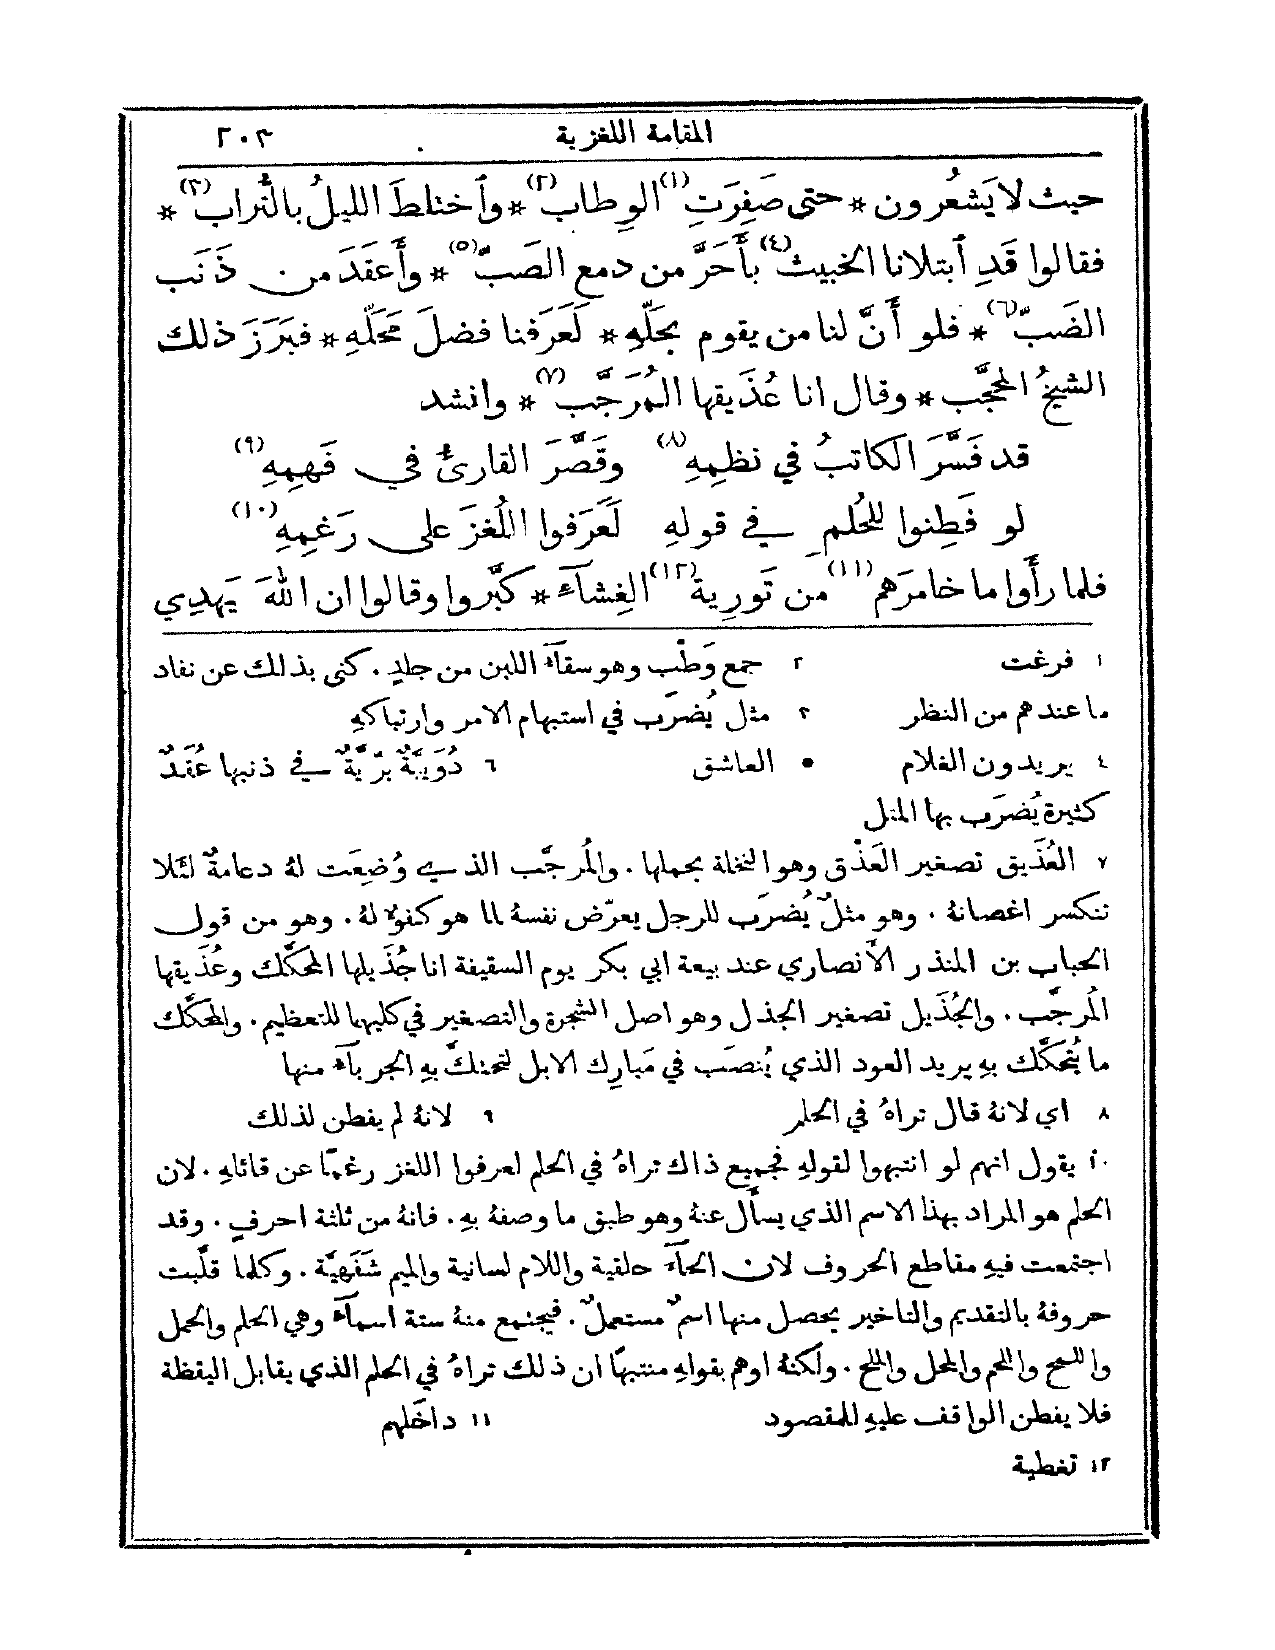 المقامة اللغزية ٢٠٣
حيث لا يَشعُرون * حتى صَفِرَتِ(١) الوِطاب(٢) * وٱختلطَ الليلُ بالتُّراب(٣) *
فقالوا قَدِ ٱبتلانا الخبيث(٤) بأَحَرَّ من دمع الصَبّ(٥) * وأَعقَدَ من ذَنَب
الضَبّ(٦) * فلو أَنَّ لنا من يقوم بحَلِّهِ * لَعَرَفنا فضلَ مَحَلِّهِ * فبَرَزَ ذلك
الشيخُ المحجَّب * وقال انا عُذَيقُها المُرَجَّب(٧) * وانشد
قد فَسَّرَ الكاتبُ في نظمِهِ(٨) وقَصَّرَ القارئُ في فَهمِهِ(٩)
لو فَطِنوا للحُلم في قولهِ لَعَرَفوا اللُغزَ على رَغمِهِ(١٠)
فلما رأَوا ما خامرَهم(١١) من تَورِية(١٢) الغِشآء * كَبَّروا وقالوا ان اللهَ يَهدِي
١ فرغت ٢ جمع وَطْب وهو سقآء اللبن من جلدٍ. كنى بذلك عن نفاد
ما عندهم من النظر ٣ مثل يُضرَب في استبهام الامر وارتباكهِ
٤ يريدون الغلام ٥ العاشق ٦ دُوَيبَّةٌ برّيّةٌ في ذنبها عُقَدٌ
كثيرة يُضرَب بها المثل
٧ العُذَيق تصغير العَذْق وهو النخلة بحملها. والمُرجَّب الذي وُضِعَت لهُ دعامةٌ لئلا
تنكسر اغصانهُ. وهو مثلٌ يُضرَب للرجل يعرّض نفسهُ لما هو كفوءٌ لهُ. وهو من قول
الحباب بن المنذر الأَنصاري عند بيعة ابي بكر يوم السقيفة انا جُذَيلها المحكَّك وعُذَيقها
المُرجَّب. والجُذَيل تصغير الجذل وهو اصل الشجرة والتصغير في كليهما للتعظيم. والمحكَّك
ما يُتحكَّك بهِ يريد العود الذي يُنصَب في مَبارِك الابل لتحتكّ بهِ الجربآء منها
٨ اي لانهُ قال تراهُ في الحلم ٩ لانهُ لم يفطن لذلك
١٠ يقول انهم لو انتبهوا لقولهِ فجميع ذاك تراهُ في الحلم لعرفوا اللغز رغمًا عن قائلهِ. لان
الحلم هو المراد بهذا الاسم الذي يسأَل عنهُ وهو طبق ما وصفهُ بهِ. فانهُ من ثلثة احرفٍ. وقد
اجتمعت فيهِ مقاطع الحروف لان الحآء حلقية واللام لسانية والميم شَفَهيّة. وكلما قلّبت
حروفهُ بالتقديم والتاخير يحصل منها اسمٌ مستعملٌ. فيجتمع منهُ ستة اسمآء وهي الحلم والحمل
واللمح واللحم والمحل والملح. ولكنهُ اوهم بقولهِ منتبهًا ان ذلك تراهُ في الحلم الذي يقابل اليقظة
فلا يفطن الواقف عليهِ للمقصود ١١ داخَلهم
١٢ تغطية